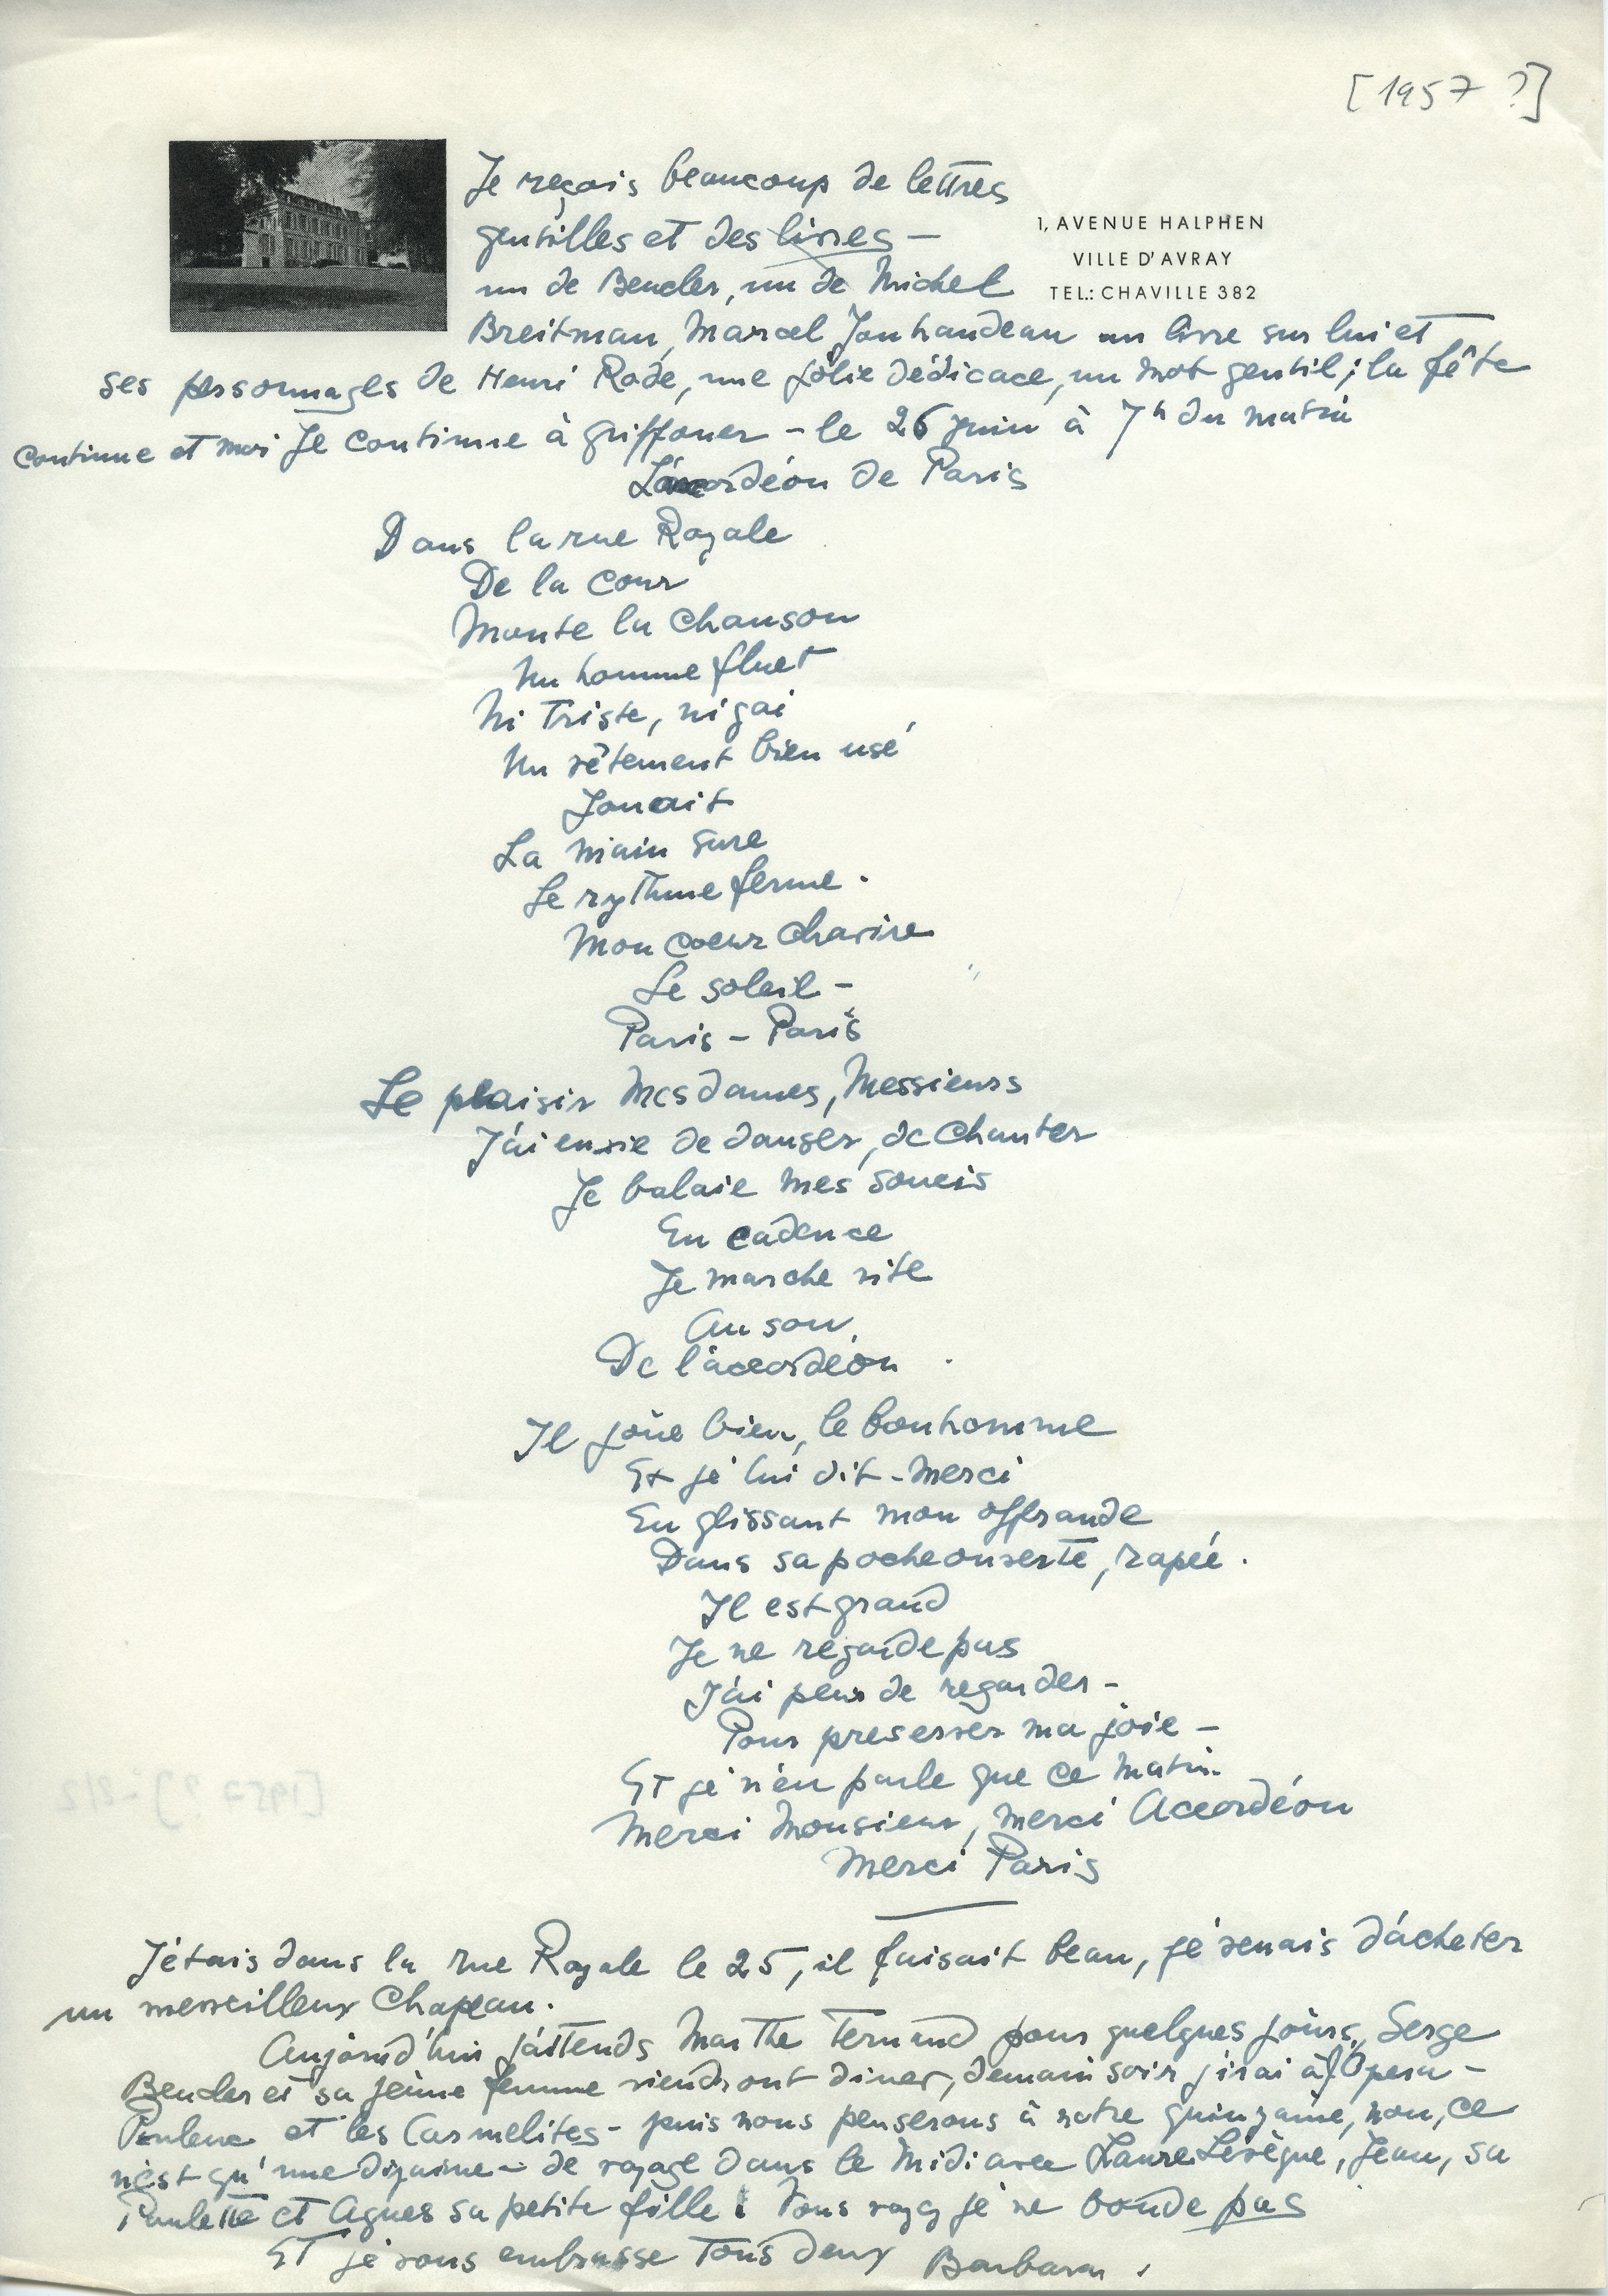 [1957 ?]
Je reçois beaucoup de lettres
gentilles et des livres –
un de Beucler, un de Michel
1, AVENUE HALPHEN
VILLE D'AVRAY
TEL.: CHAVILLE 382
Breitman, Marcel Jouhandeau un livre sur lui et
ses personnages de Henri Rode, une jolie dédicace, un mot gentil ; la fête
continue et moi je continue à griffoner – le 26 juin à 7h du matin
L'accordéon de Paris
Dans la rue Royale
De la cour
Monte la chanson
Un homme fluet
Ni triste, ni gai
Un vêtement bien usé
Jouait
La main sure
Le rythme ferme.
Mon coeur chavire
Le soleil –
Paris – Paris
Le plaisir Mesdames, Messieurs
J'ai envie de danser, de chanter
Je balaie mes soucis
En cadence
Je marche vite
Au son
De l'accordéon.
Il joue bien, le bonhomme
Et je lui dit – merci
En glissant mon offrande
Dans sa poche ouverte, rapée.
Il est grand
Je ne regarde pas
J'ai peur de regarder –
Pour preserver ma joie –
Et je n'en parle que ce matin.
Merci Monsieur, merci Accordéon
Merci Paris
J'étais dans la rue Royale le 25, il faisait beau, je venais d'acheter
un merveilleux chapeau.
Aujourd'hui j'attends Marthe pour quelques jours, Serge
Beucler et sa jeune femme viendront diner, demain soir j'irai à l'Opera –
Poulenc et les Carmelites – puis nous penserons à notre quinzaine, non, ce
n'est qu'une dizaine – de voyage dans le Midi avec Laure Lévêque, Jean, sa
Paulette et Agnes sa petite fille ! Vous voyez je ne boude pas
Et je vous embrasse tous deux Barbara.
[1957 ?] - 2/2